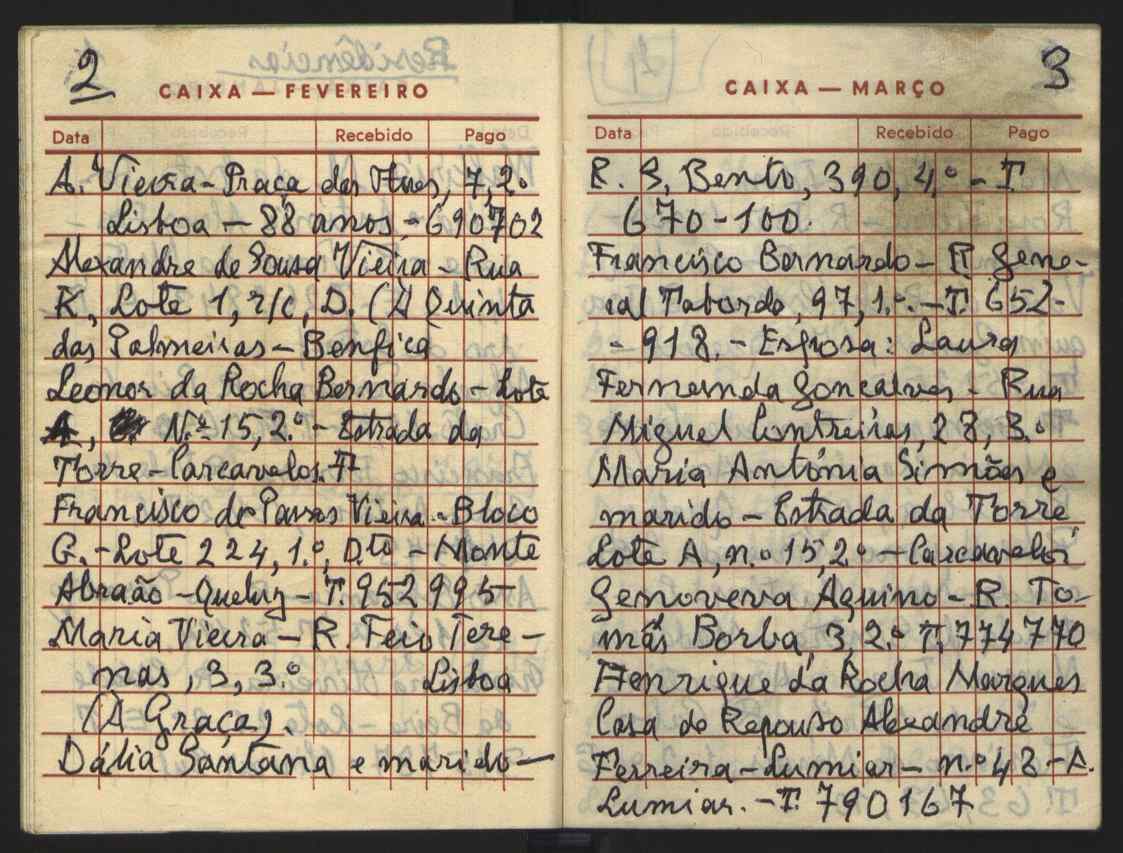 2
CAIXA — FEVEREIRO
Data Recebido Pago
A. Vieira - Praça das Aves, 7, 2.º
Lisboa - 88 anos - 690702
Alexandre de Sousa Vieira - Rua
K, Lote 1, r/c, D. (À Quinta
das Palmeiras - Benfica
Leonor da Rocha Bernardo - Lote
A, N.º 15, 2.º - Estrada da
Torre - Carcavelos.
Francisco de Passos Vieira - Bloco
G. - Lote 224, 1.º, D.to - Monte
Abraão - Queluz - T. 952995
Maria Vieira - R. Feio Tere-
nas, 3, 3.º Lisboa
(À Graça).
Dália Santana e marido -
3
CAIXA — MARÇO
Data Recebido Pago
R. S. Bento, 390, 4.º - T
670-100.
Francisco Bernardo - R. Gene-
ral Taborda, 97, 1.º - T. 652-
- 918. - Esposa: Laura
Fernanda Gonçalves - Rua
Miguel Contreiras, 28, 3.º
Maria Antónia Simões e
marido - Estrada da Torre
Lote A, n.º 15, 2.º - Carcavelos
Genoveva Aquino - R. To-
más Borba, 3, 2.º T. 774770
Henrique da Rocha Marques
Casa de Repouso Alexandre
Ferreira - Lumiar - n.º 48 - A.
Lumiar. - T. 790167